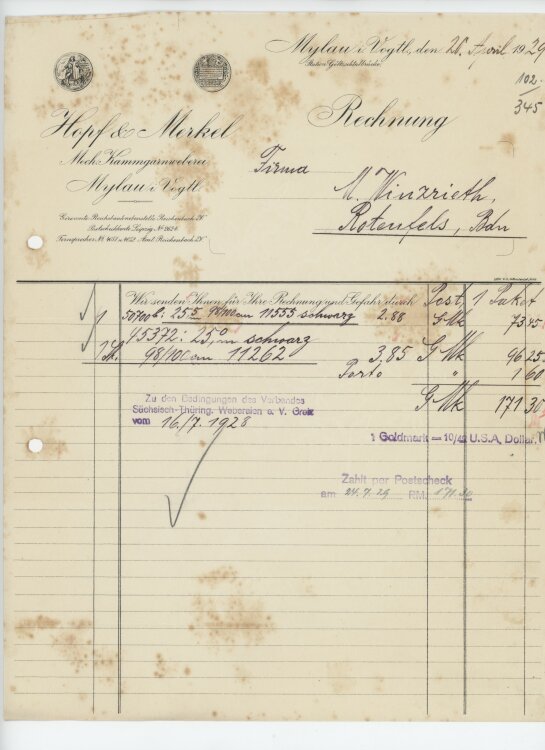 Mylau i. Vogtl., den 26. April 1929
Station Göltzschtalbrücke
102.
345
Hopf & Merkel
Mech. Kammgarnweberei
Mylau i. Vogtl.
Rechnung
Firma
M. Winzrieth,
Rotenfels, Bdn
Girokonto Reichsbanknebenstelle Reichenbach i.V.
Postscheckkonto Leipzig Nº
Fernsprecher Nº Amt Reichenbach i.V.
Wir senden Ihnen für Ihre Rechnung und Gefahr durch Post 1 Paket
1 50700 b: 25.5 98/100 cm 11555 schwarz 2.88 GMk 73 45
45372: 25,0 m schwarz
1 St. 98/100 cm 11262 3,85 GMk 96 25
Porto " 1 60
GMk 171 30
Zu den Bedingungen des Verbandes
Sächsisch-Thüring. Webereien e. V. Greiz
vom 16/7. 1928
1 Goldmark = 10/42 U.S.A. Dollar.
Zahlt per Postscheck
am 24.7.29 RM. 171.30